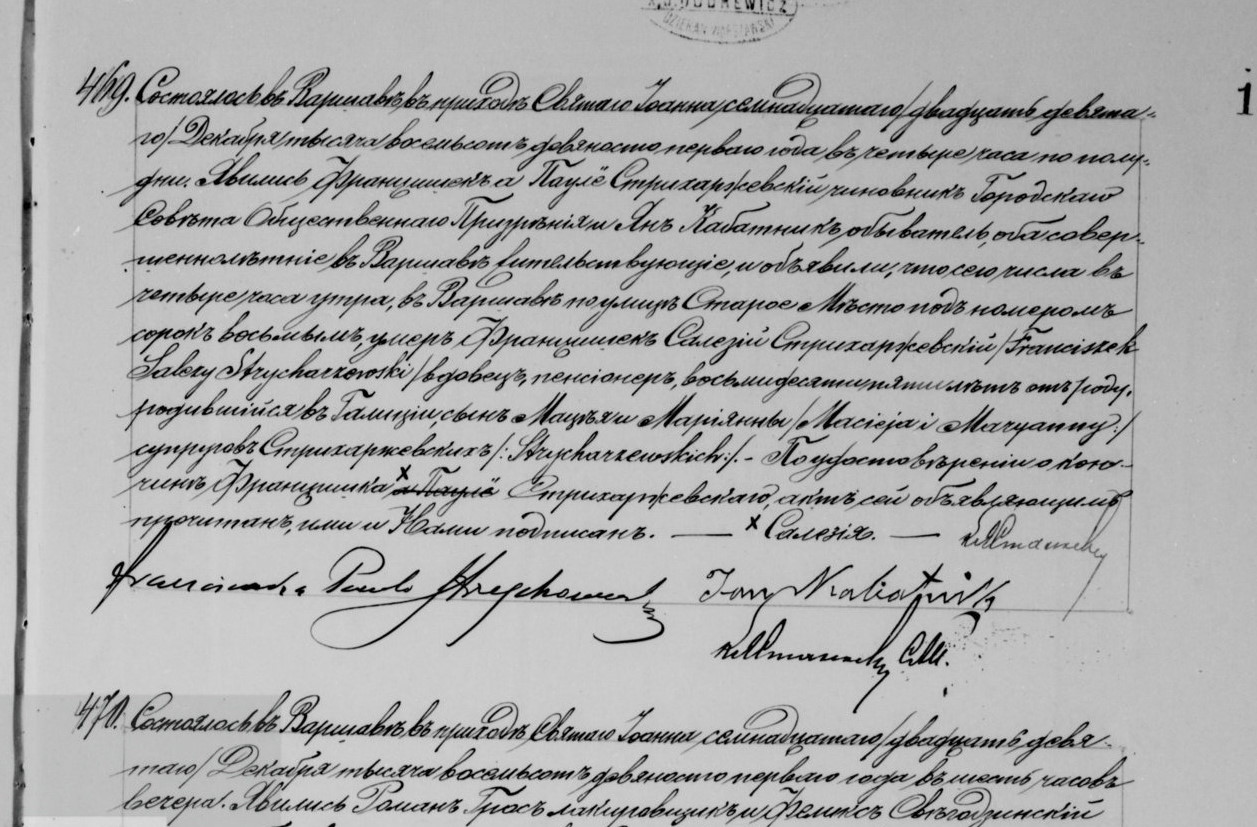 DZIEKAN
469. Состоялось въ Варшавѣ въ приходѣ Святаго Іоанна семнадцатаго /двадцать девята-
го/ Декабря тысяча восемьсотъ девяносто перваго года въ четыре часа по полу-
дни. Явились Францишекъ а Паулё Стрихаржевскій чиновникъ Городскаго
Совѣта Общественнаго Призрѣнія и Янъ Кабатникъ, обыватель, оба совер-
шеннолѣтніе въ Варшавѣ жительствующіе, и объявили, что сего числа въ
четыре часа утра, въ Варшавѣ по улицѣ Старое Мѣсто подъ номеромъ
сорокъ восьмымъ, умеръ Францишекъ Салезій Стрихаржевскій /Franciszek
Salezy Strycharzewski/ вдовецъ, пенсіонеръ, восьмидесяти пяти лѣтъ отъ роду,
родившійся въ Галиціи, сынъ Мацѣя и Маріянны /Macieja i Maryanny:/
супруговъ Стрихаржевскихъ /:Strycharzewskich:/. - По удостовѣреніи о кон-
чинѣ Францишка x а Паулё Стрихаржевскаго, актъ сей объявляющимъ
прочитанъ, ими и Нами подписанъ. — x Салезія. —
Franciszek a Paulo
Jan Kabatnik
470. Состоялось въ Варшавѣ въ приходѣ Святаго Іоанна семнадцатаго /двадцать девя-
таго/ Декабря тысяча восемьсотъ девяносто перваго года въ шесть часовъ
вечера. Явились Романъ Гросъ лакировщикъ и Феликсъ